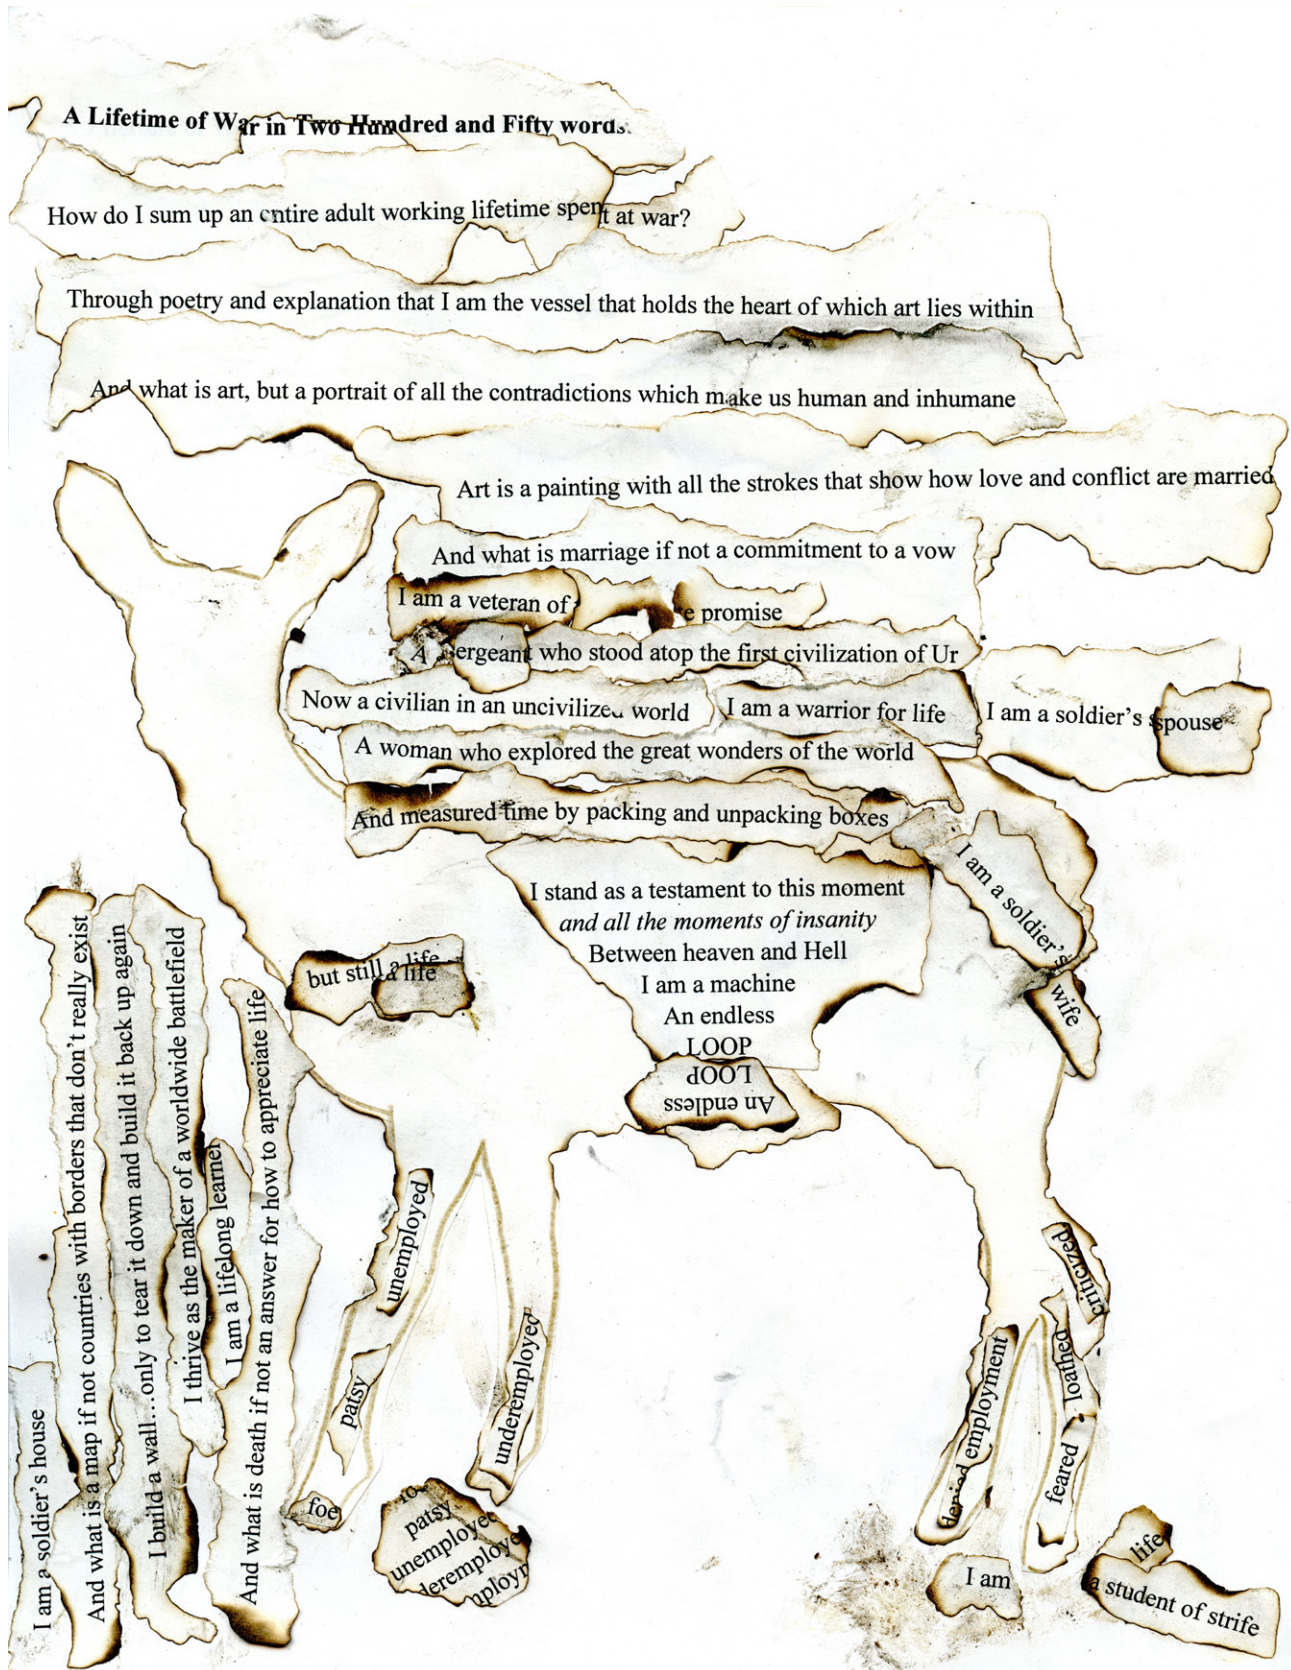 A Lifetime of War in Two Hundred and Fifty words.
How do I sum up an entire adult working lifetime spent at war?
Through poetry and explanation that I am the vessel that holds the heart of which art lies within
And what is art, but a portrait of all the contradictions which make us human and inhumane
Art is a painting with all the strokes that show how love and conflict are married
And what is marriage if not a commitment to a vow
I am a veteran of
promise
A sergeant who stood atop the first civilization of Ur
Now a civilian in an uncivilized world
I am a warrior for life
I am a soldier's spouse
A woman who explored the great wonders of the world
And measured time by packing and unpacking boxes
I am a soldier's
wife
I stand as a testament to this moment
and all the moments of insanity
Between heaven and Hell
I am a machine
An endless
LOOP
LOOP
An endless
but still a life
a life
I am a soldier's house
And what is a map if not countries with borders that don't really exist
I build a wall…only to tear it down and build it back up again
I thrive as the maker of a worldwide battlefield
I am a lifelong learner
And what is death if not an answer for how to appreciate life
unemployed
patsy
foe
underemployed
patsy
unemployed
deremploye
mployn
criticized
loathed
feared
denied employment
I am
life
a student of strife